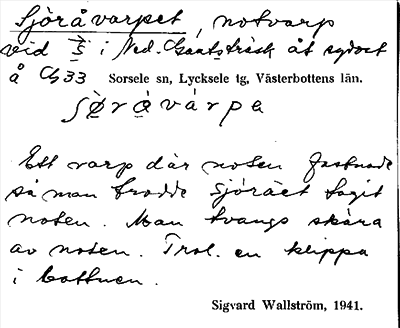 Sjöråvarpet, notvarp
vid 5 i Ned. Gautsträsk åt sydost
å C 33 Sorsele sn, Lycksele tg, Västerbottens län.
ʃø̀rå̀várpa
Ett varp där noten fastnade
så man trodde sjörået tagit
noten. Man tvangs skära
av noten. Trol. en klippa
i bottnen.
Sigvard Wallström, 1941.